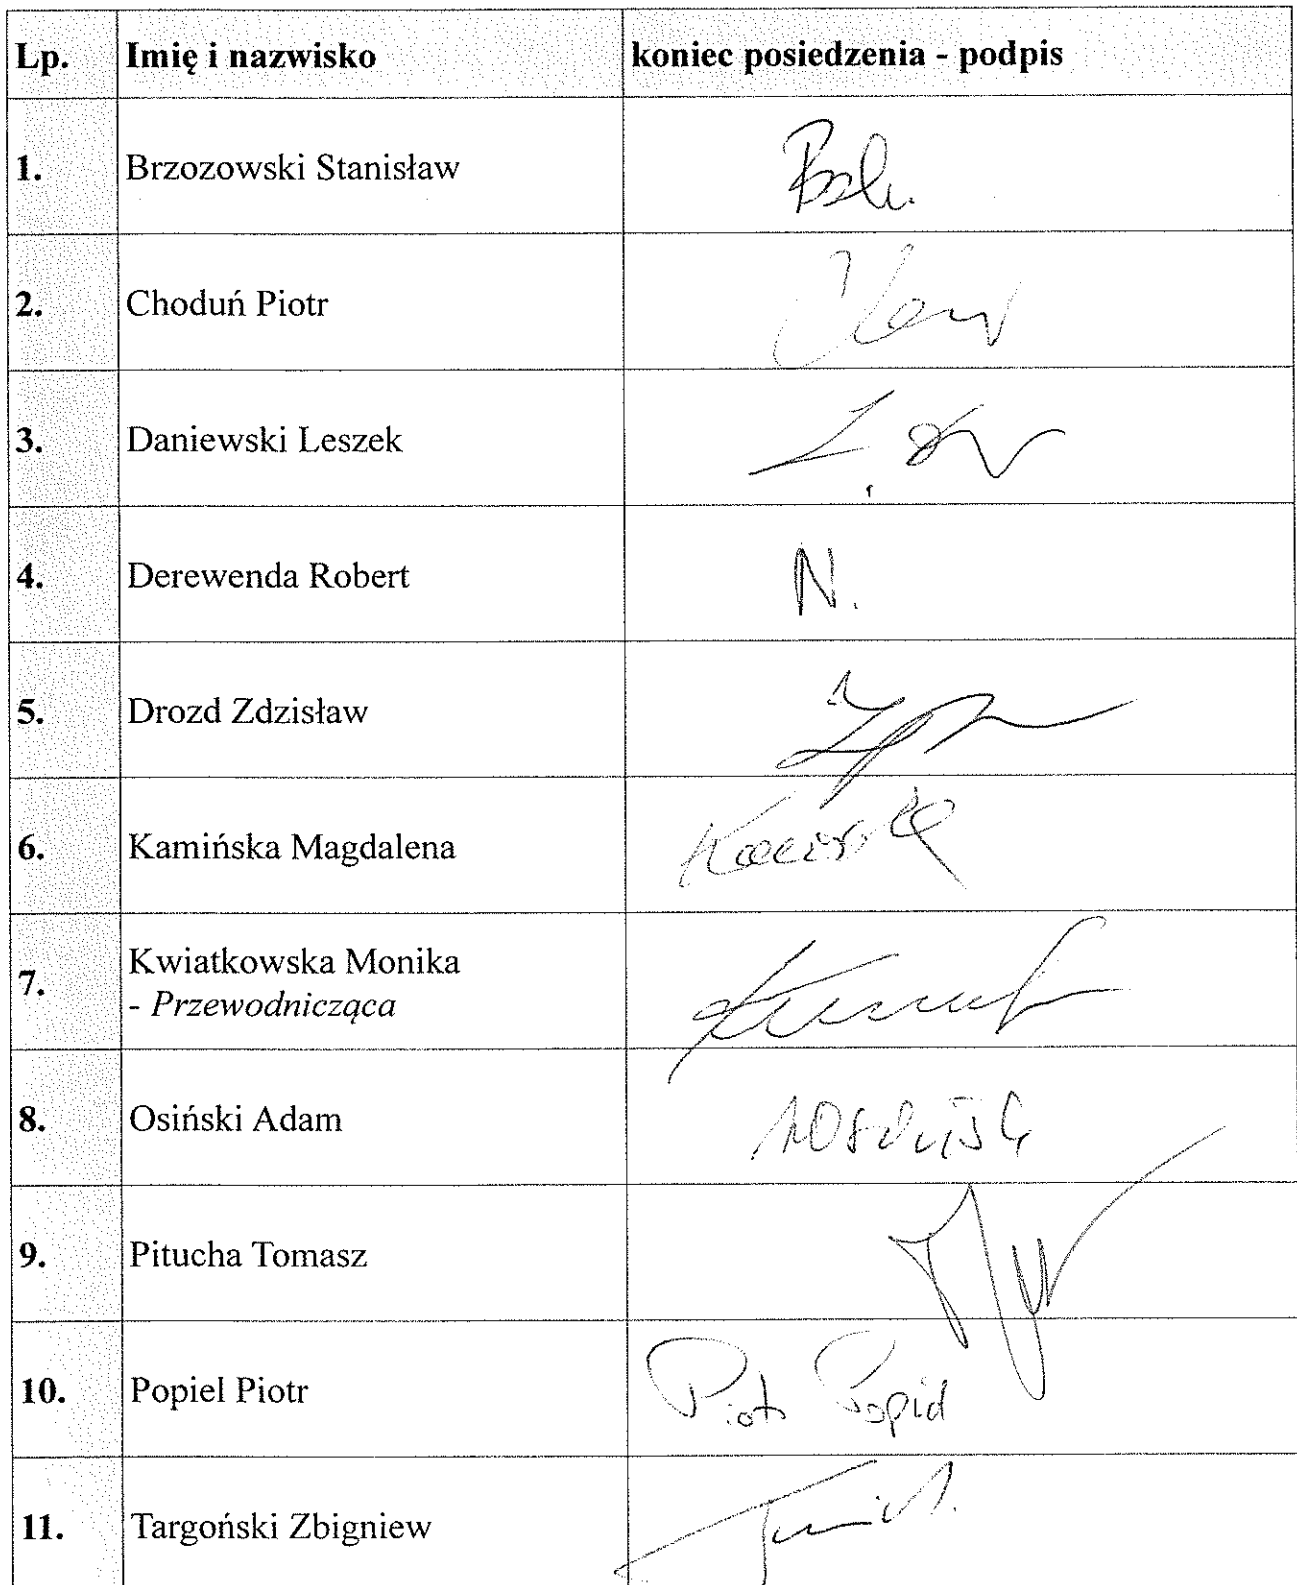 Lp. Imię i nazwisko koniec posiedzenia - podpis
1. Brzozowski Stanisław
2. Choduń Piotr
3. Daniewski Leszek
4. Derewenda Robert N.
5. Drozd Zdzisław
6. Kamińska Magdalena
7. Kwiatkowska Monika
- Przewodnicząca
8. Osiński Adam
9. Pitucha Tomasz
10. Popiel Piotr Piotr Popiel
11. Targoński Zbigniew